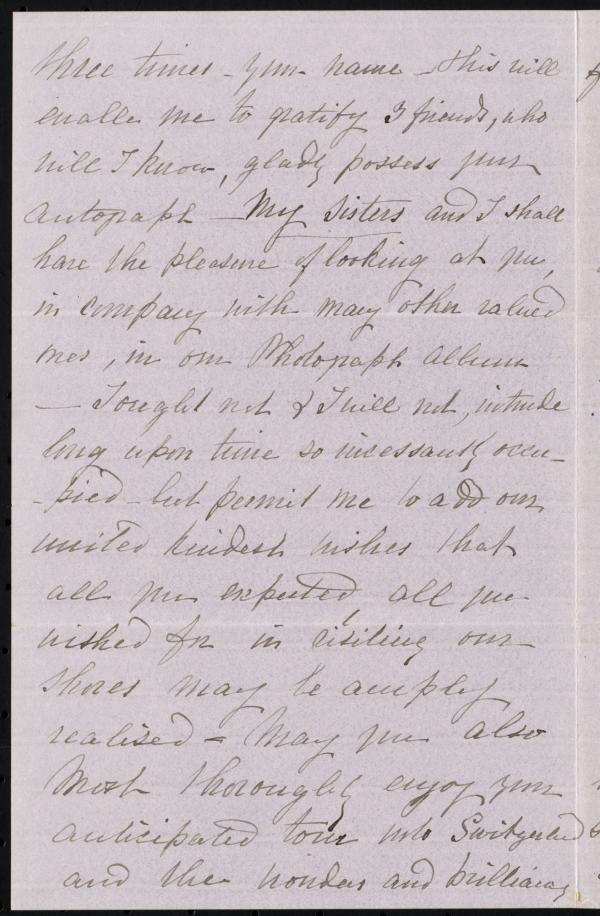 three times - your name - this will
enable me to gratify 3 friends, who
will I know, gladly possess your
autograph - My Sisters and I shall
have the pleasure of looking at you,
in company with many other valued
ones, in our Photograph album
- I ought not & I will not, intrude
long upon time so incessantly occu-
-pied - but permit me to add our
united kindest wishes that
all you expected, all you
wished for in visiting our
shores may be amply
realised - May you also
most thoroughly enjoy your
anticipated tour into Switzerland
and the wonders and brilliancy